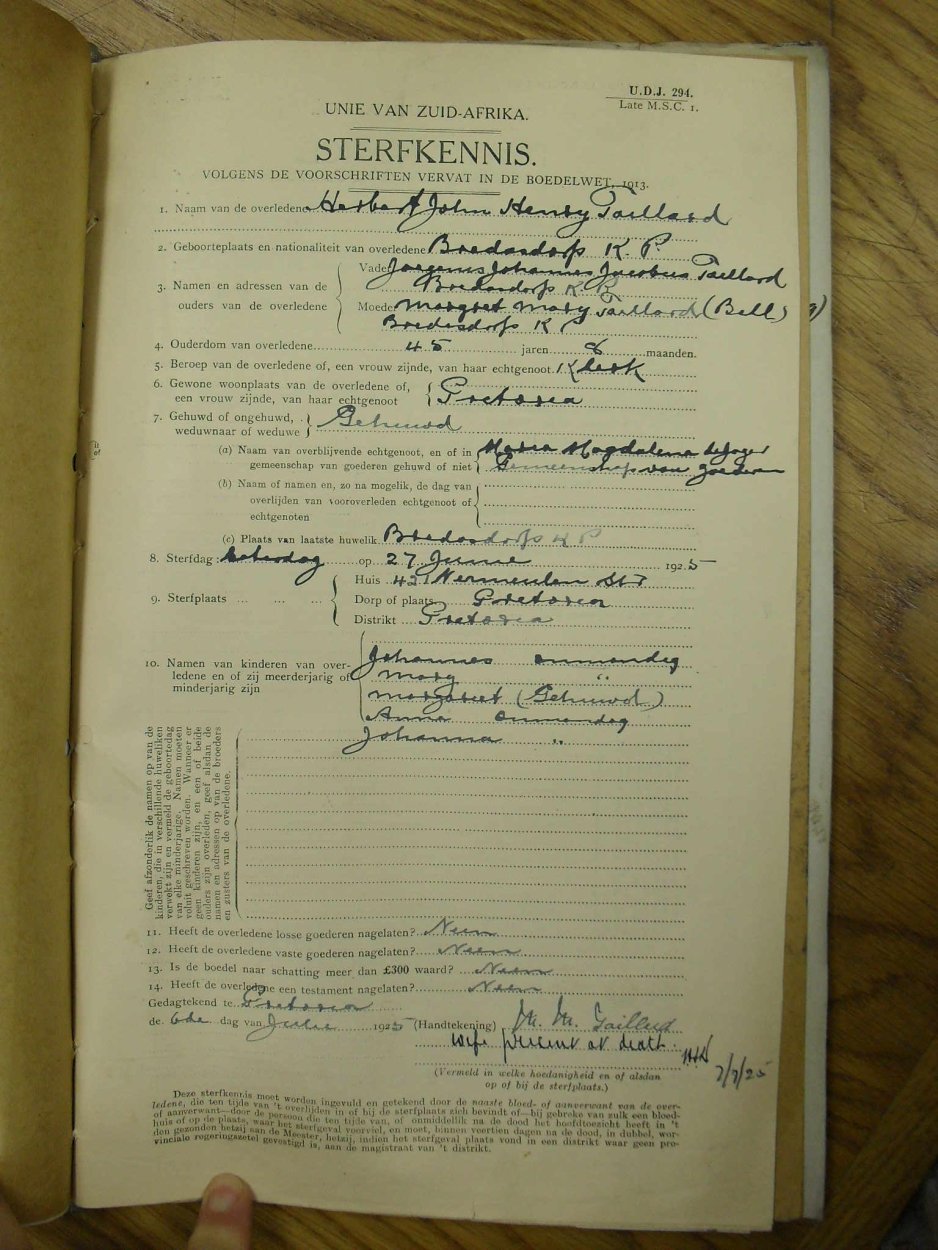 U.D.J. 294.
Late M.S.C. 1.
UNIE VAN ZUID-AFRIKA.
STERFKENNIS.
VOLGENS DE VOORSCHRIFTEN VERVAT IN DE BOEDELWET, 1913.
1. Naam van de overledene Herbert John Henry Taillard
2. Geboorteplaats en nationaliteit van overledene Bredasdorp K. P.
Vader Joergenus Johannes Jacobus Taillard
3. Namen en adressen van de Bredasdorp K P.
ouders van de overledene Moeder Margret Mary Taillard (Bell)
Bredesdorp K P
4. Ouderdom van overledene 45 jaren 8 maanden.
5. Beroep van de overledene of, een vrouw zijnde, van haar echtgenoot Klerk
6. Gewone woonplaats van de overledene of, Pretoria
een vrouw zijnde, van haar echtgenoot
7. Gehuwd of ongehuwd, Gehuwd
weduwnaar of weduwe
(a) Naam van overblijvende echtgenoot, en of in Maria Magdalena de Jager
gemeenschap van goederen gehuwd of niet Gemeenschap van goederen
(b) Naam of namen en, zo na mogelik, de dag van
overlijden van vooroverleden echtgenoot of
echtgenoten
(c) Plaats van laatste huwelik Bredasdorp K P
8. Sterfdag: Saterdag op 27 Junie 1925
Huis 421 Vermeulen Str
9. Sterfplaats ... ... ... Dorp of plaats Pretoria
Distrikt Pretoria
10. Namen van kinderen van over- Johannes onmondig
ledene en of zij meerderjarig of Mary "
minderjarig zijn Margaret (Gehuwd)
Anna onmondig
Johanna "
Geef afzonderlik de namen op van de
kinderen, die in verschillende huweliken
verwekt zijn en vermeld de geboortedag
van elke minderjarige. Namen moeten
voluit geschreven worden. Wanneer er
geen kinderen zijn, en een of beide
ouders zijn overleden, geef alsdan de
namen en adressen op van de broeders
en zusters van de overledene.
11. Heeft de overledene losse goederen nagelaten? Neen
12. Heeft de overledene vaste goederen nagelaten? Neen
13. Is de boedel naar schatting meer dan £300 waard? Neen
14. Heeft de overledene een testament nagelaten? Neen
Gedagtekend te Pretoria
de 6de dag van Julie 1925 (Handtekening) M. M. Taillard
wife present at death.
7/7/25
(Vermeld in welke hoedanigheid en of alsdan
op of bij de sterfplaats.)
Deze sterfkennis moet worden ingevuld en getekend door de naaste bloed- of aanverwant van de over-
ledene, die ten tijde van 't overlijden in of bij de sterfplaats zich bevindt of—bij gebreke van zulk een bloed-
of aanverwant—door de persoon die ten tijde van, of onmiddellik na de dood het hoofdtoezicht heeft in 't
huis of op de plaats, waar het sterfgeval voorviel, en moet, binnen veertien dagen na de dood, in dubbel, wor-
den gezonden hetzij aan de Meester, hetzij, indien het sterfgeval plaats vond in een distrikt waar geen pro-
vinciale regeringszetel gevestigd is, aan de magistraat van 't distrikt.